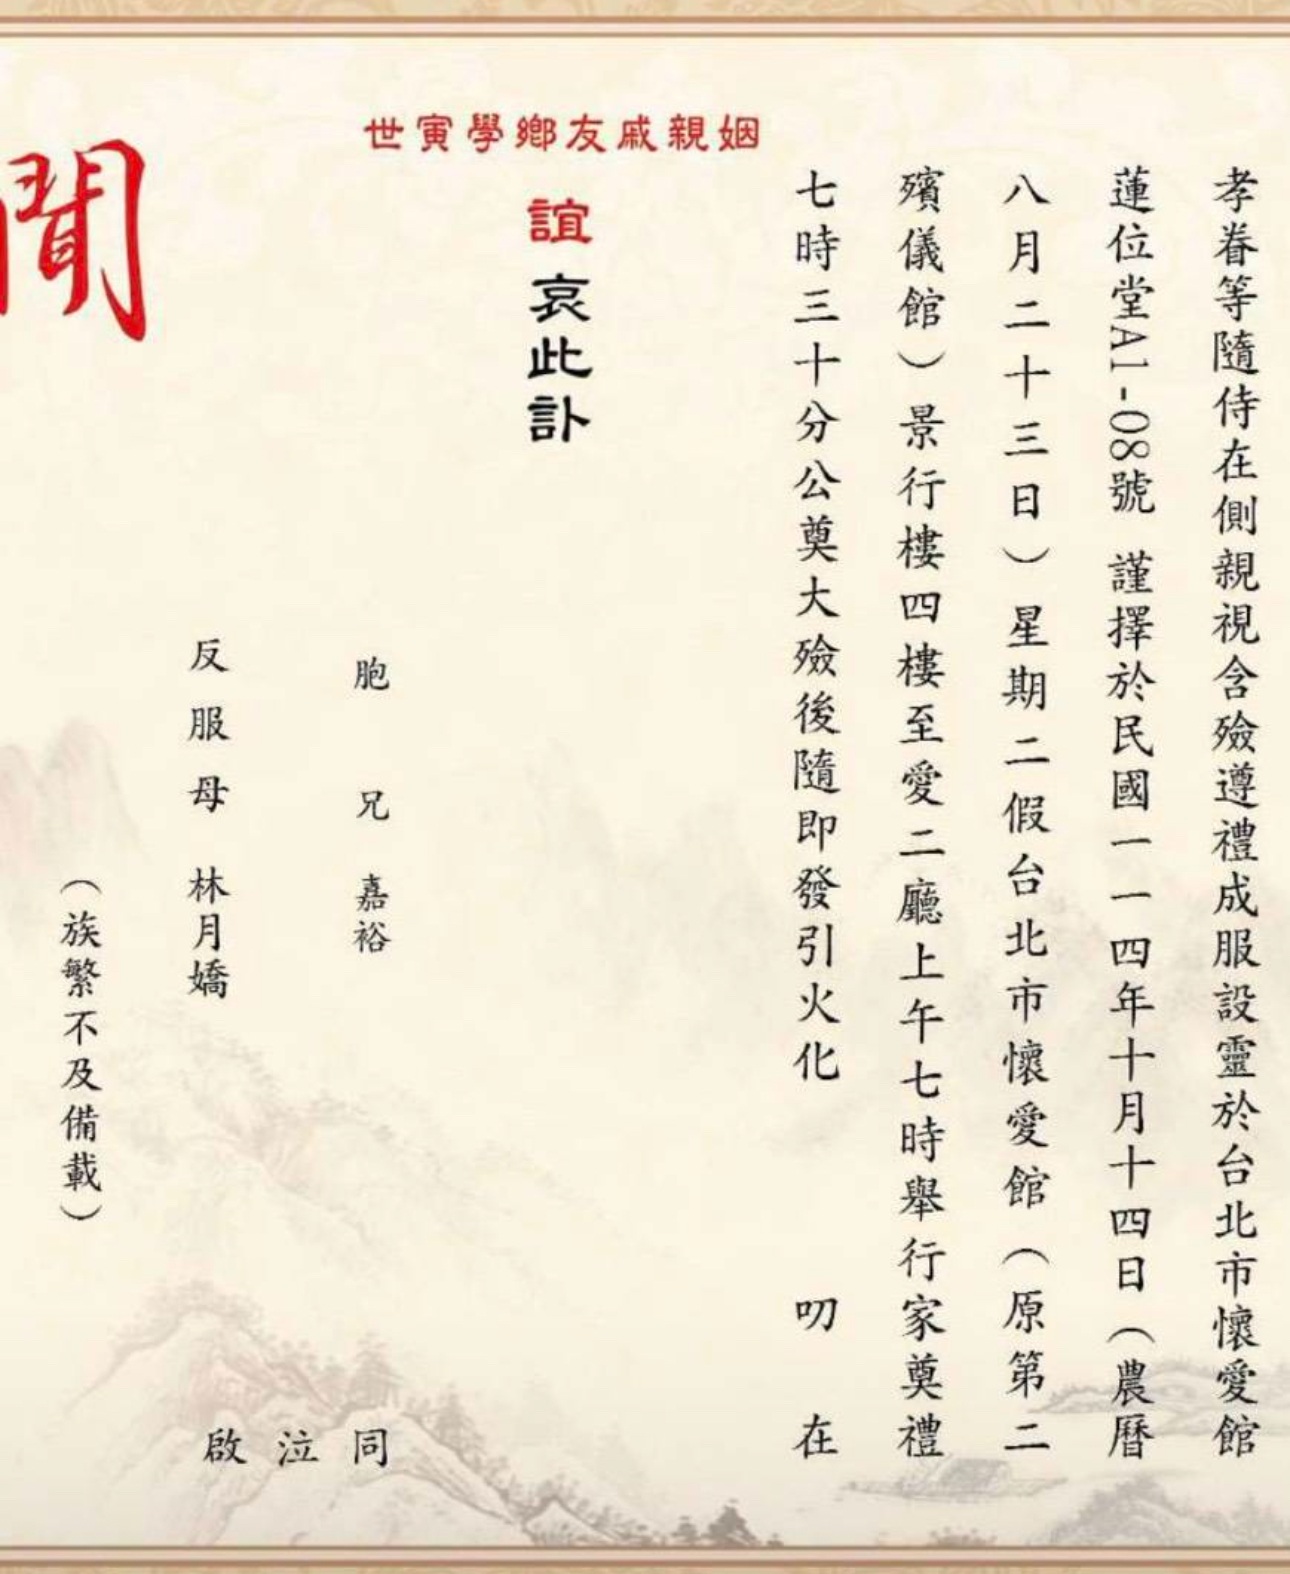 孝眷等隨侍在側親視含殮遵禮成服設靈於台北市懷愛館
蓮位堂A1-08號 謹擇於民國一一四年十月十四日（農曆
八月二十三日）星期二假台北市懷愛館（原第二
殯儀館）景行樓四樓至愛二廳上午七時舉行家奠禮
七時三十分公奠大殮後隨即發引火化 叨 在
姻親戚友鄉學寅世
誼 哀此訃
胞兄 嘉裕
反服母 林月嬌
（族繁不及備載）
同泣啟
聞